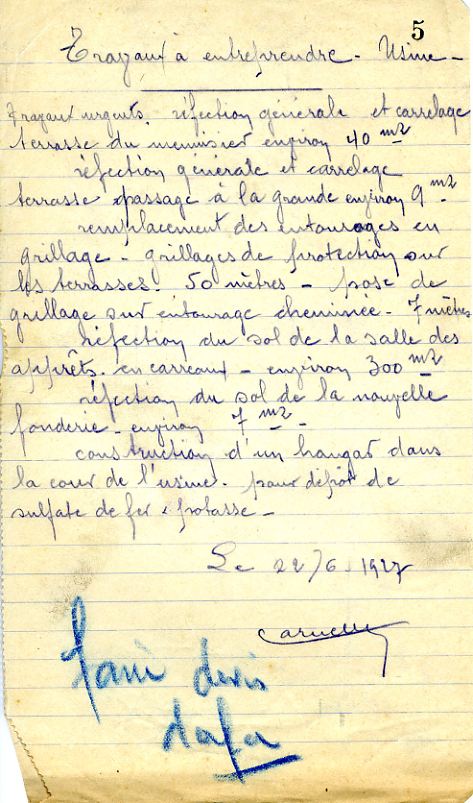 5
Travaux à entreprendre - Usine -
Travaux urgents. réfection générale et carrelage
terrasse du menuisier environ 40 m2
réfection générale et carrelage
terrasse passage à la grande environ 9 m2 -
remplacement des entourages en
grillage - grillages de protection sur
les terrasses. 50 mètres - pose de
grillage sur entourage cheminée. 7 mètres
réfection du sol de la salle des
apprêts. en carreaux - environ 300 m2
réfection du sol de la nouvelle
fonderie - environ 7 m2 -
construction d'un hangar dans
la cour de l'usine. pour dépôt de
sulfate de fer & potasse -
Le 22/6.1927
faire devis